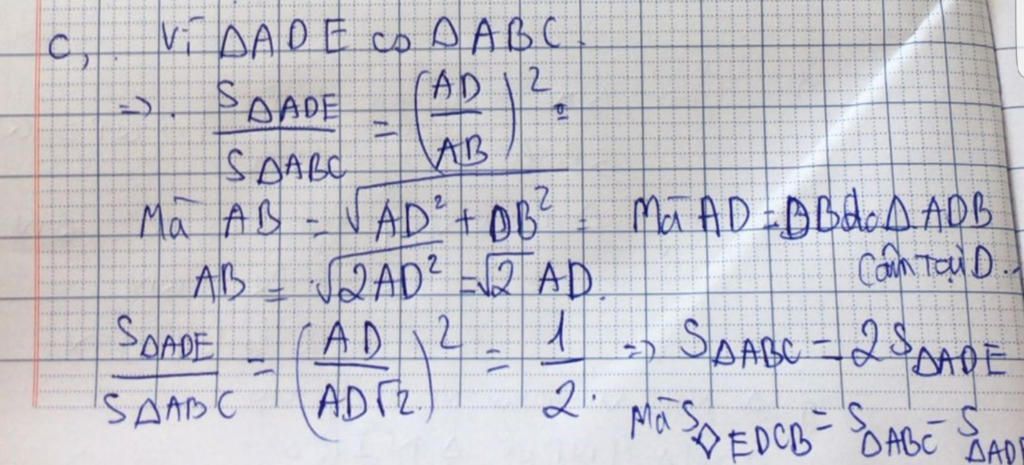 c, Vì ΔADE ∽ ΔABC.
=> S ΔADE / S ΔABC = (AD/AB)² =
Mà AB = √(AD² + DB²) = Mà AD = DB do Δ ADB
cân tại D.
AB = √(2AD²) = √2 AD.
S ΔADE / S ΔABC = (AD / AD√2)² = 1/2. => S ΔABC = 2 S ΔADE
Mà S ◇ EDCB = S ΔABC - S ΔADE